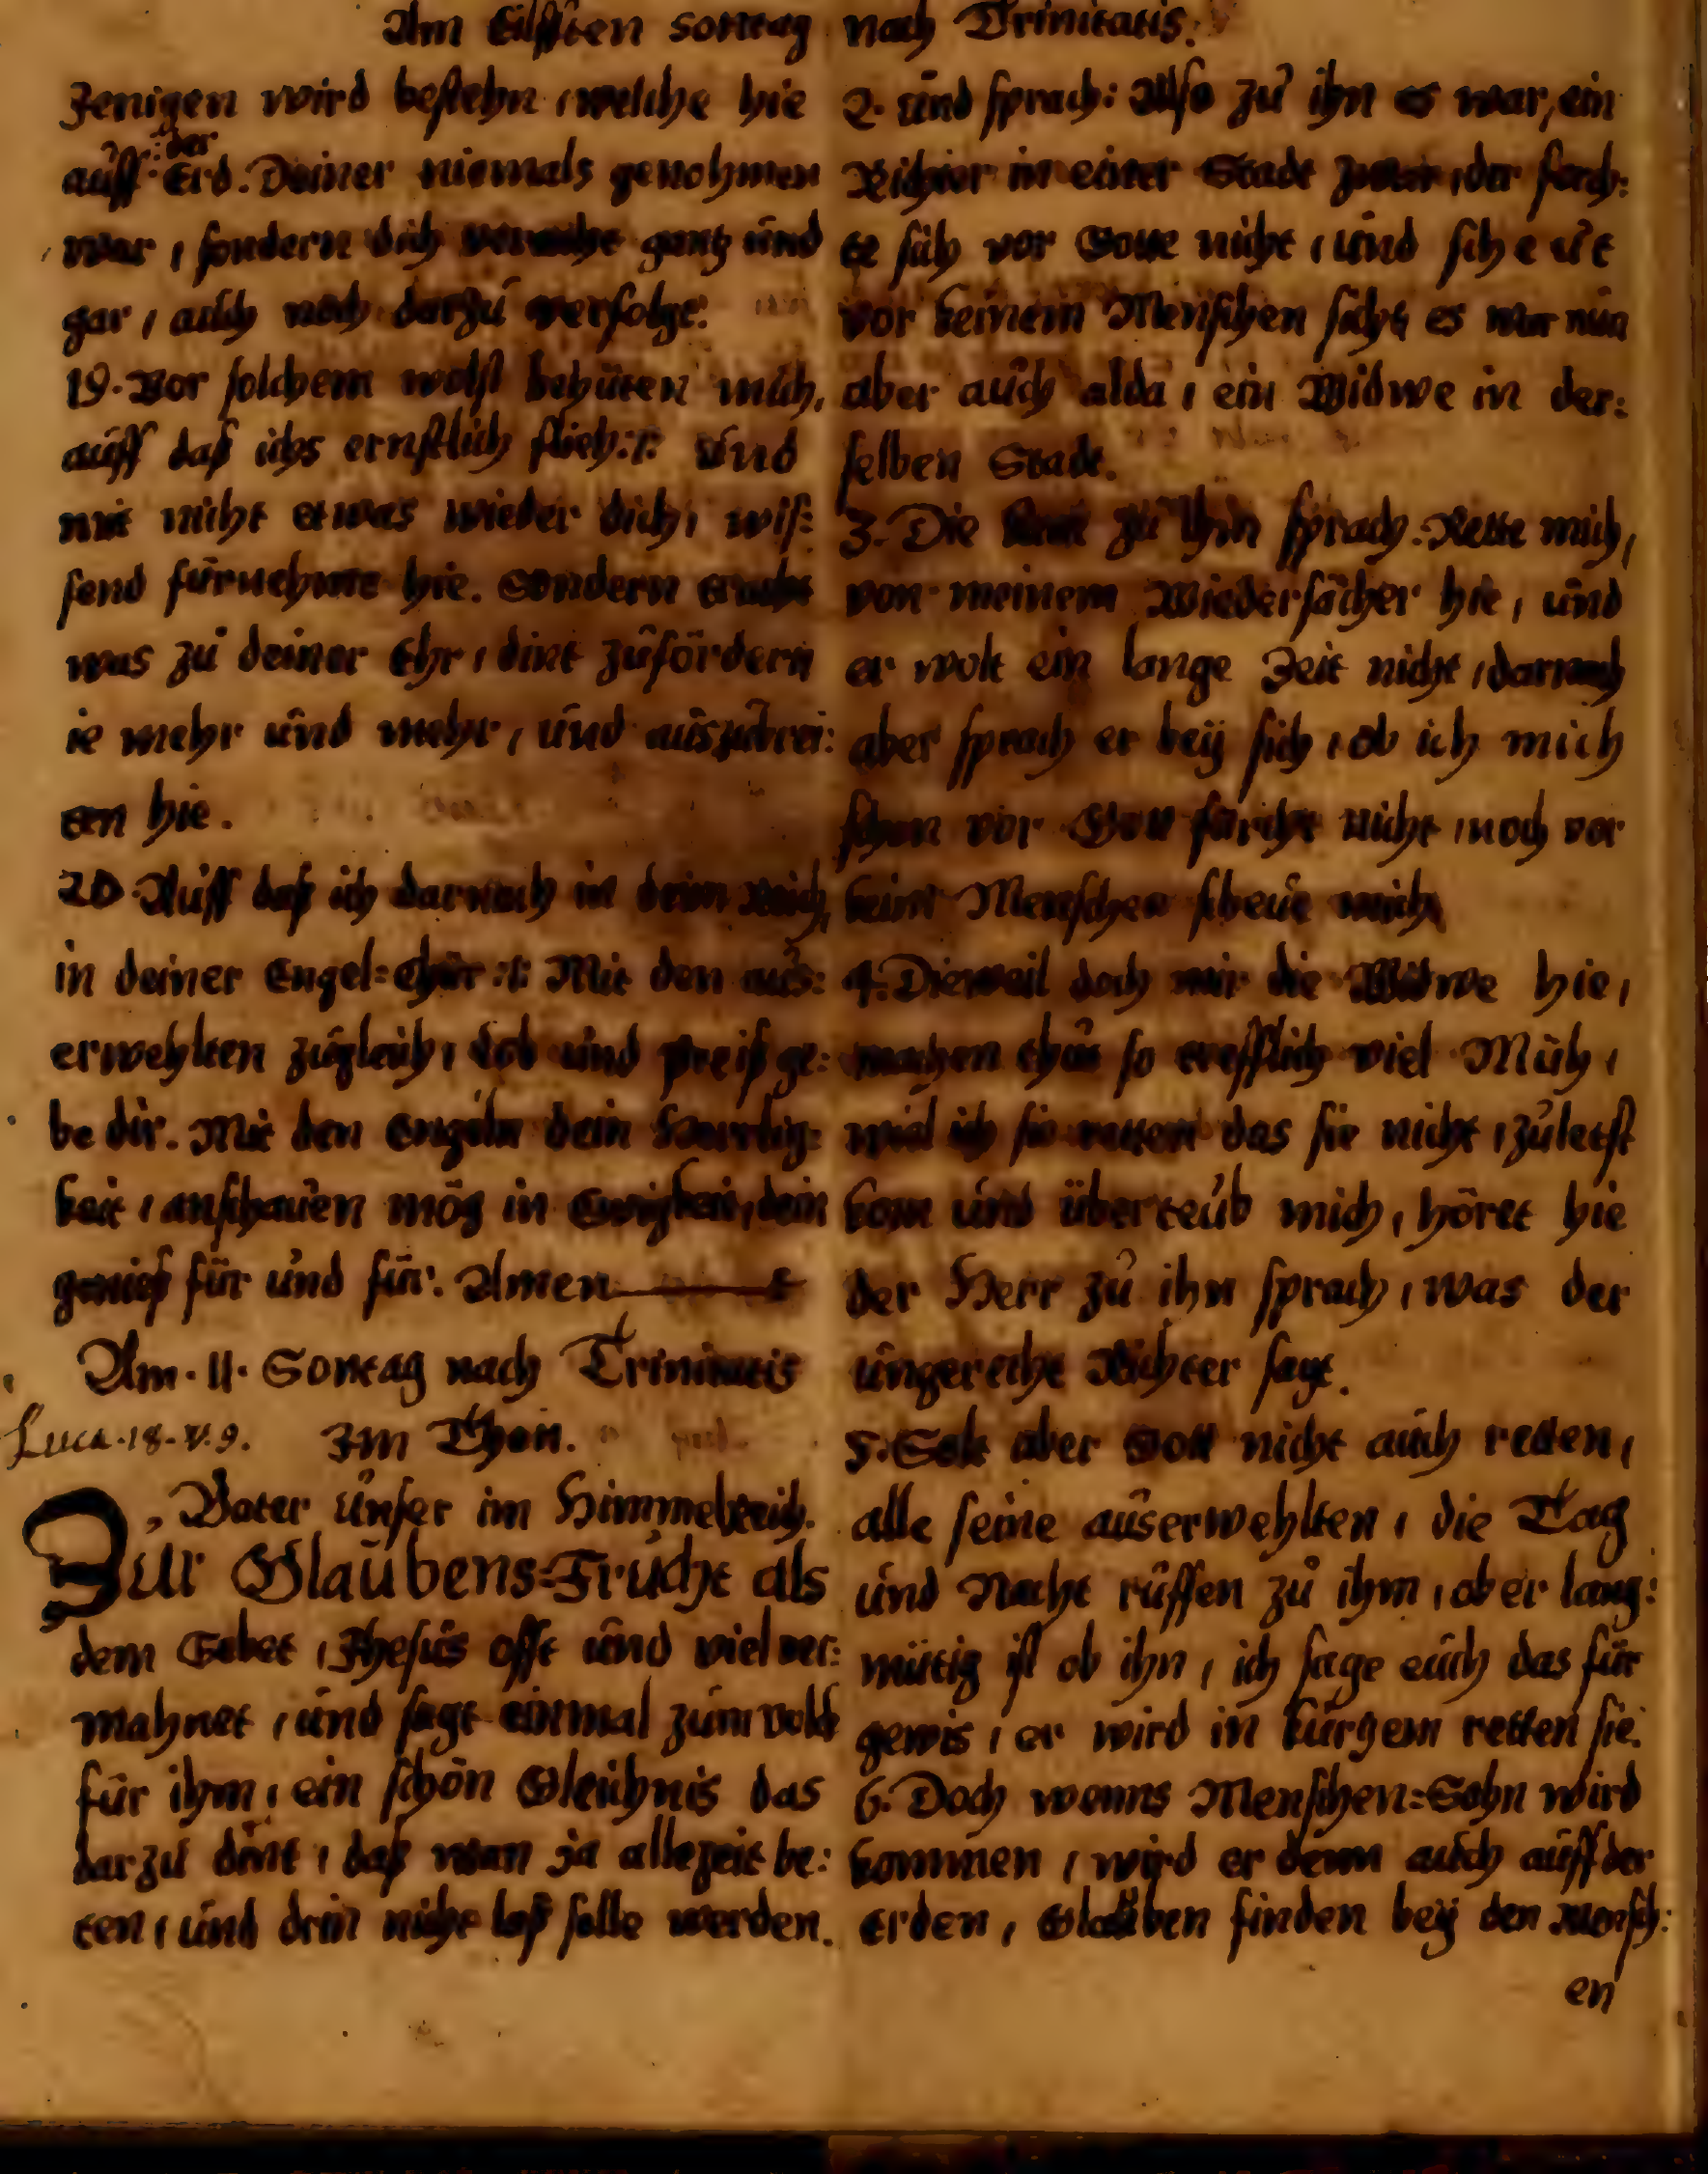 Am Eilfften sontag nach Trinitatis.
Jenigen wird bestehn, welche hie
auff der Erd. Deiner niemals genohmen
war, sondern dich veracht gantz und
gar, auch noch darzu verfolgt.
19. Vor solchem wolst behüten mich,
auff daß ichs ernstlich flieh :/: Und
mit nicht etwas wieder dich, wis:
send fürnehme hie. Sondern
was zu deiner Ehr, dint zufördern
ie mehr und mehr, und auszubrei:
ten hie.
20. Auff daß ich darnach in deim Reich,
in deiner Engel=Chür :/: Mit den aus:
erwehlten zugleich, Lob und preiß ge:
be dir. Mit den Engeln dein Herrlig:
keit, anschauen mög in Ewigkeit, dein
genieß für und für. Amen
Am. 11. Sontag nach Trinitatis
Luca. 18. V. 9. Im Thon.
Vater unser im Himmelreich.
Zur Glaubens=Frucht als
dem Gebet, Jhesus offt und viel ver:
mahnet, und sagt einmal zum volck
für ihm, ein schön Gleichnis das
darzu dint, daß man ja allezeit be:
ten, und drin nicht laß solle werden.
2. und sprach: Also zu ihn es war, ein
Richter in einer Stadt zwar, der forch:
te sich vor Gotte nicht, und scheut
vor keinem Menschen sich, es war nun
aber auch alda, ein Widwe in der:
selben Stadt.
3. Die kam zu ihm sprach. Rette mich,
von meinem Wiedersacher hie, und
er wolt ein lange Zeit nicht, darnach
aber sprach er bey sich, ob ich mich
schon vor Gott fürchte nicht, noch vor
keim Menschen scheue mich,
4. Dieweil doch mir die Widwe hie,
machen thut so trefflich viel Müh,
wiel ich sie retten das sie nicht, zuletst
kom und überteub mich, höret hie
der Herr zu ihn sprach, was der
ungerechte Richter sagt.
5. Solt aber Gott nicht auch retten,
alle seine auserwehlten, die Tag
und Nacht ruffen zu ihm, ob er lang:
mütig ist ob ihn, ich sage euch das für
gewis, er wird in kurtzem retten sie.
6. Doch wenns Menschen=Sohn wird
kommen, wird er denn auch auff der
Erden, Glauben finden bey den Mensch:
en